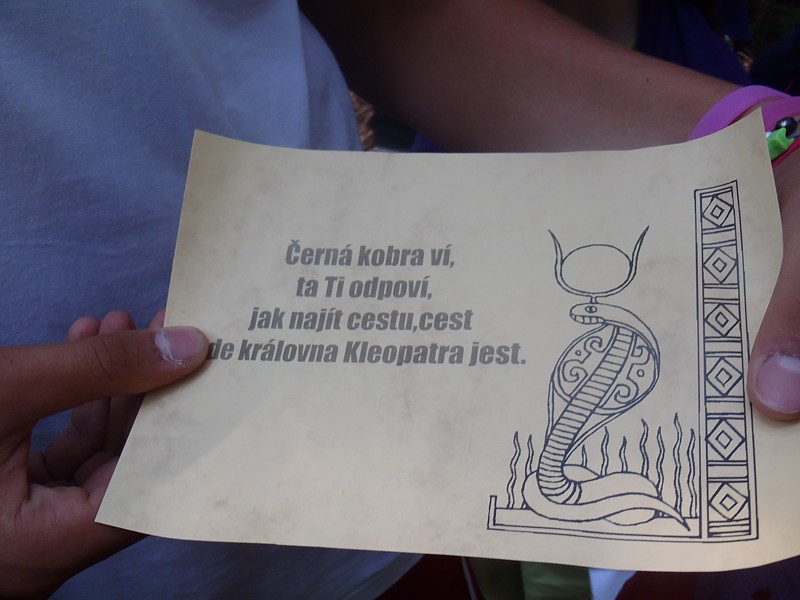 Černá kobra ví,
ta Ti odpoví,
jak najít cestu,cest
de královna Kleopatra jest.